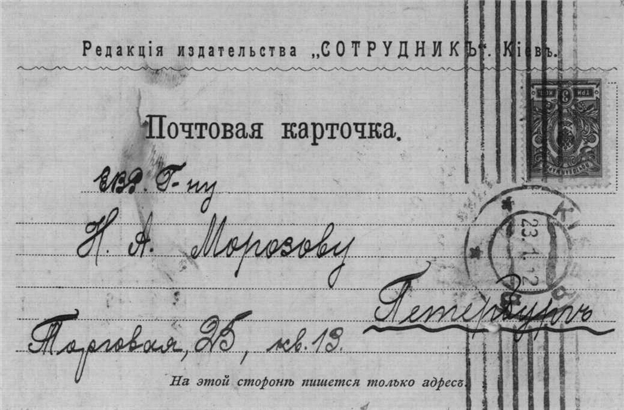 Редакція издательства „СОТРУДНИКЪ“. Кіевъ.
Почтовая карточка.
ЕВР. Г-ну
Н. А. Морозову
23. 1. 12
Петербургъ
Торговая, 25, кв. 13.
На этой сторонѣ пишется только адресъ.